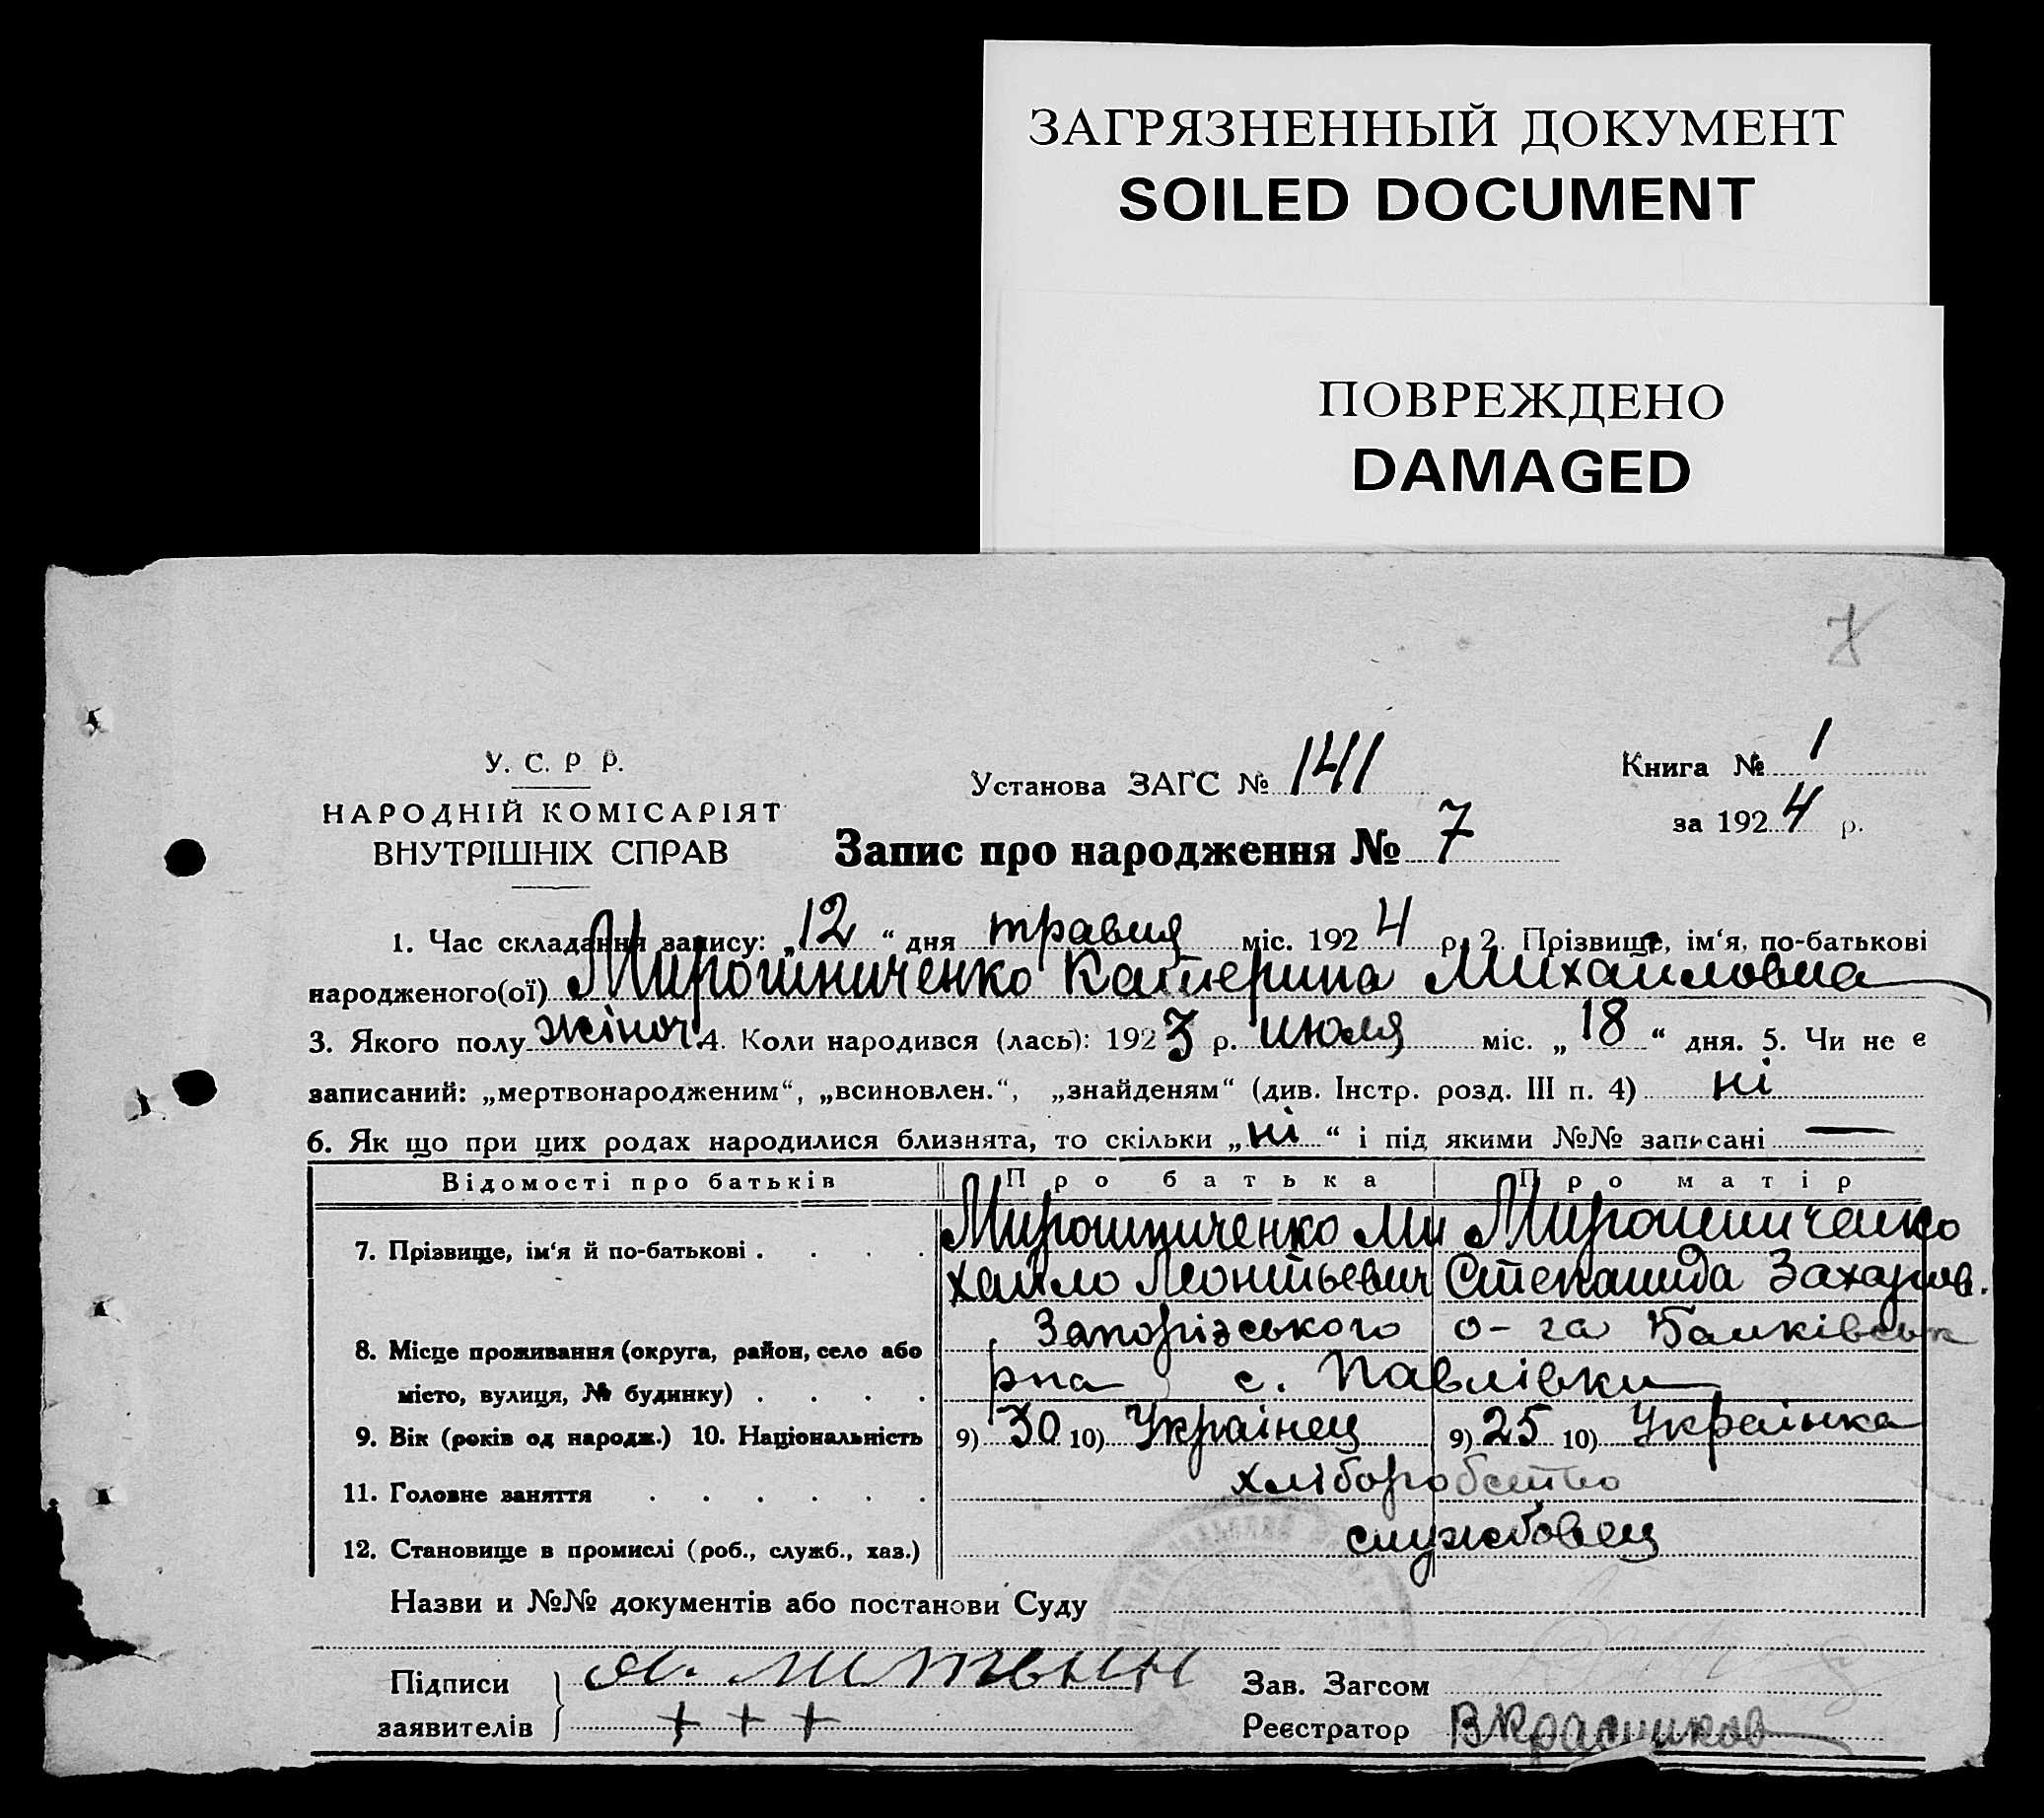 ЗАГРЯЗНЕННЫЙ ДОКУМЕНТ
SOILED DOCUMENT
ПОВРЕЖДЕНО
DAMAGED
7
У. С. Р. Р.
НАРОДНІЙ КОМІСАРІЯТ
ВНУТРІШНІХ СПРАВ
Установа ЗАГС № 141
Книга № 1
за 1924 р.
Запис про народження № 7
1. Час складання запису: „12“ дня травня міс. 1924 р. 2. Прізвище, ім‘я, по-батькові
народженого(ої) Мирошниченко Катерина Михайловна
3. Якого полу жіноч. 4. Коли народився (лась): 1923 р. июля міс. „18“ дня. 5. Чи не є
записаний: „мертвонародженим“, „всиновлен.“, „знайденям“ (див. Інстр. розд. III п. 4) ні
6. Як що при цих родах народилися близнята, то скільки „ні“ і під якими №№ записані —
Відомості про батьків Про батька Про матір
7. Прізвище, ім‘я й по-батькові . . . . Мирошниченко Ми Мирошниченко
хайло Леонтьевич Степанида Захаров.
8. Місце проживання (округа, район, село або Запорізського о-га
місто, вулиця, № будинку) . . . . р-на с. Павлівки
9. Вік (років од народж.) 10. Національність 9) 30 10) Українец 9) 25 10) Українка
11. Головне заняття . . . . . . хліборобство
12. Становище в промислі (роб., служб., хаз.) службовец
Назви и №№ документів або постанови Суду
Підписи Зав. Загсом
заявителів + + + Реєстратор ВКрасников